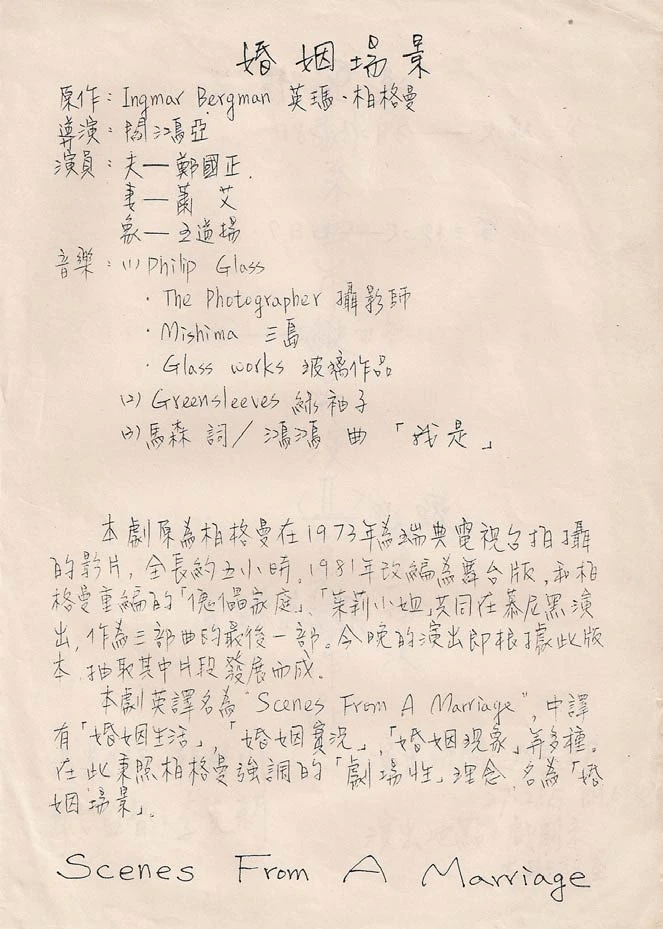 婚姻場景
原作：Ingmar Bergman 英瑪·柏格曼
導演：閻鴻亞
演員：夫—鄭國正.
妻—蕭 艾
象—王道揚
音樂：(1) Philip Glass
· The Photographer 攝影師
· Mishima 三島
· Glass works 玻璃作品
(2) Greensleeves 綠袖子
(3) 馬森 詞/ 鴻鴻 曲 「我是」
本劇原為柏格曼在1973年為瑞典電視台拍攝
的影片, 全長約五小時. 1981年改編為舞台版, 和柏
格曼重編的「傀儡家庭」、「茱莉小姐」共同在慕尼黑演
出, 作為三部曲的最後一部。今晚的演出即根據此版
本, 抽取其中片段發展而成.
本劇英譯名為 "Scenes From A Marriage", 中譯
有「婚姻生活」,「婚姻實況」,「婚姻現象」等多種。
在此秉照柏格曼強調的「劇場性」理念, 名為「婚
姻場景」.
Scenes From A Marriage